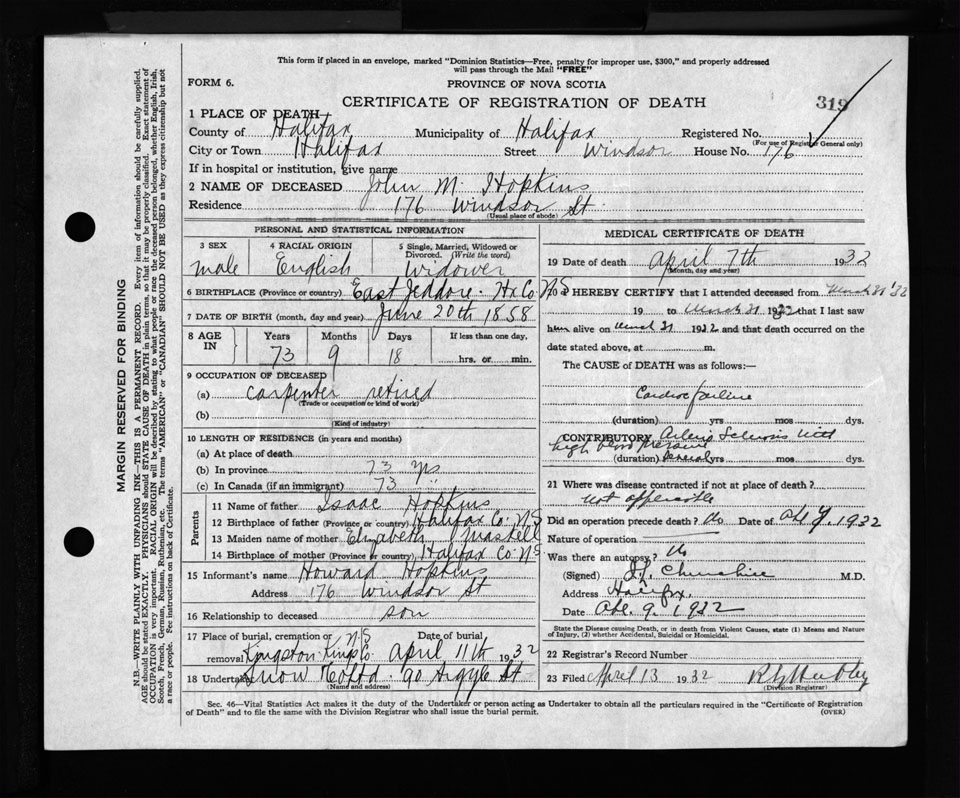 This form if placed in an envelope, marked "Dominion Statistics—Free, penalty for improper use, $300," and properly addressed
will pass through the Mail "FREE"
FORM 6.
PROVINCE OF NOVA SCOTIA
CERTIFICATE OF REGISTRATION OF DEATH
319
1 PLACE OF DEATH
County of Halifax Municipality of Halifax Registered No.
(For use of Registrar General only)
City or Town Halifax Street Windsor House No. 176
If in hospital or institution, give name
2 NAME OF DECEASED John M. Hopkins
Residence 176 Windsor St.
(Usual place of abode)
PERSONAL AND STATISTICAL INFORMATION
3 SEX 4 RACIAL ORIGIN 5 Single, Married, Widowed or Divorced. (Write the word)
male English Widower
6 BIRTHPLACE (Province or country) East Jeddore. Hx Co N.S
7 DATE OF BIRTH (month, day and year) June 20th 1858
8 AGE IN Years Months Days If less than one day,
73 9 18 hrs. or min.
9 OCCUPATION OF DECEASED
(a) carpenter retired
(Trade or occupation or kind of work)
(b)
(Kind of industry)
10 LENGTH OF RESIDENCE (in years and months)
(a) At place of death
(b) In province 73 yrs
(c) In Canada (if an immigrant) 73 "
Parents
11 Name of father Isaac Hopkins
12 Birthplace of father (Province or country) Halifax Co. N.S
13 Maiden name of mother Elizabeth
14 Birthplace of mother (Province or country) Halifax Co. N.S
15 Informant's name Howard Hopkins
Address 176 Windsor St
16 Relationship to deceased son
17 Place of burial, cremation or removal Kingston Kings Co. N.S Date of burial April 11th 1932
18 Undertaker Snow & Co Ltd. 90 Argyle St
(Name and address)
MEDICAL CERTIFICATE OF DEATH
19 Date of death April 7th 1932
(Month, day and year)
20 I HEREBY CERTIFY that I attended deceased from March 31 '32
19 to March 31 1932 that I last saw
him alive on March 31 1932 and that death occurred on the
date stated above, at m.
The CAUSE of DEATH was as follows:—
Cardiac failure
(duration) yrs mos dys.
CONTRIBUTORY Arterio Sclerosis with
high blood pressure
(duration) several yrs mos dys.
21 Where was disease contracted if not at place of death?
not applicable
Did an operation precede death? No Date of Ap. 9. 1932
Nature of operation
Was there an autopsy? No
(Signed) Churchill M.D.
Address Halifax.
Date Ap. 9. 1932
State the Disease causing Death, or in death from Violent Causes, state (1) Means and Nature
of Injury, (2) whether Accidental, Suicidal or Homicidal.
22 Registrar's Record Number
23 Filed April 13 1932
(Division Registrar)
Sec. 46—Vital Statistics Act makes it the duty of the Undertaker or person acting as Undertaker to obtain all the particulars required in the "Certificate of Registration
of Death" and to file the same with the Division Registrar who shall issue the burial permit.
(OVER)
MARGIN RESERVED FOR BINDING
N.B.—WRITE PLAINLY WITH UNFADING INK—THIS IS A PERMANENT RECORD. Every item of information should be carefully supplied.
AGE should be stated EXACTLY. PHYSICIANS should STATE CAUSE OF DEATH in plain terms, so that it may be properly classified. Exact statement of
OCCUPATION is very important. RACIAL ORIGIN will be described by stating to what people or race the deceased person belonged, whether English, Irish,
Scotch, French, German, Russian, Ruthenian, etc. The terms "AMERICAN" or "CANADIAN" SHOULD NOT BE USED as they express citizenship but not
a race or people. See instructions on back of Certificate.